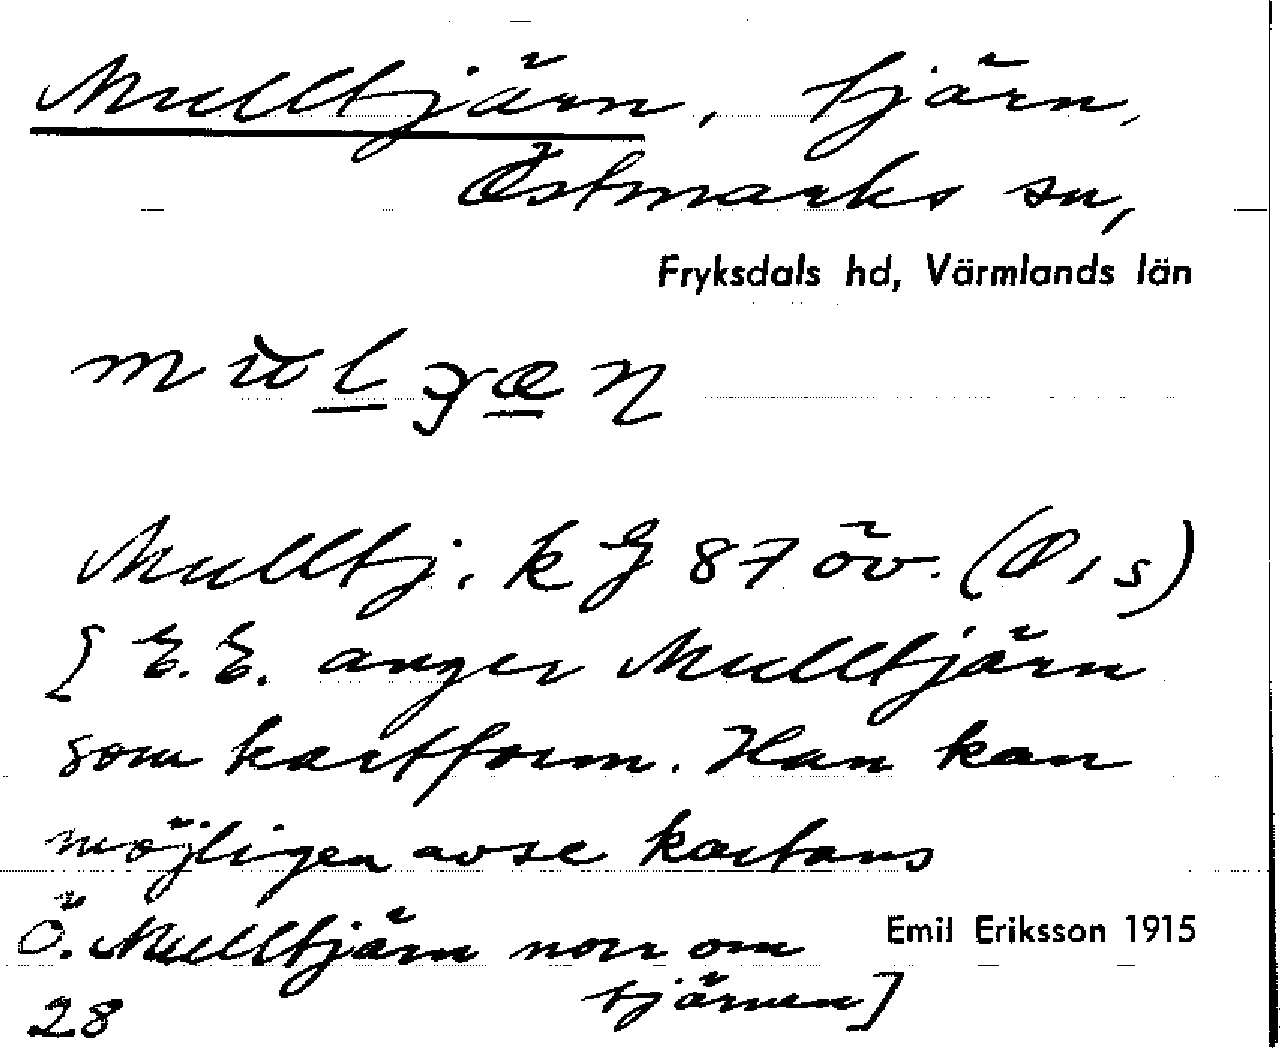 Mulltjärn, tjärn,
Östmarks sn,
Fryksdals hd, Värmlands län
Mulltj. k G 87 öv. (Ö, s)
[ E. E. anger Mulltjärn
som kartform. Han kan
möjligen avse kartans
Ö. Mulltjärn norr om
tjärnen]
Emil Eriksson 1915
28